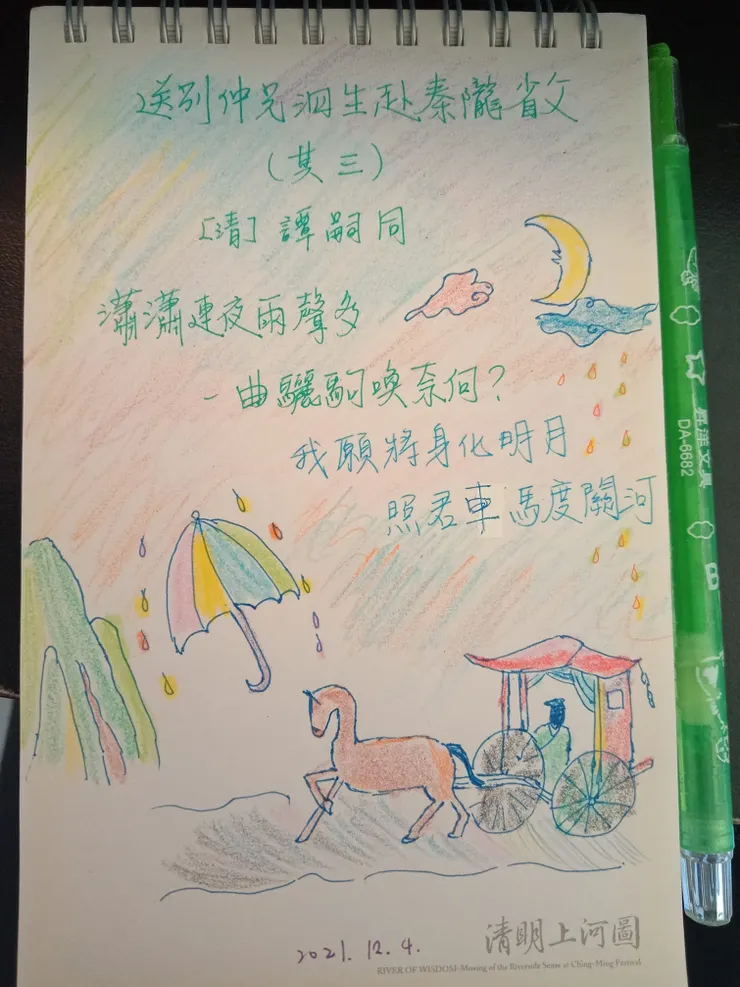 送別仲兄泗生赴秦隴省父
(其三)
[清] 譚嗣同
瀟瀟連夜雨聲多
一曲驪駒喚奈何？
我願將身化明月
照君車馬度關河
2021.12.4.
清明上河圖
RIVER OF WISDOM-Moving of the Riverside Scene at Ching-Ming Festival
DA-6682
B